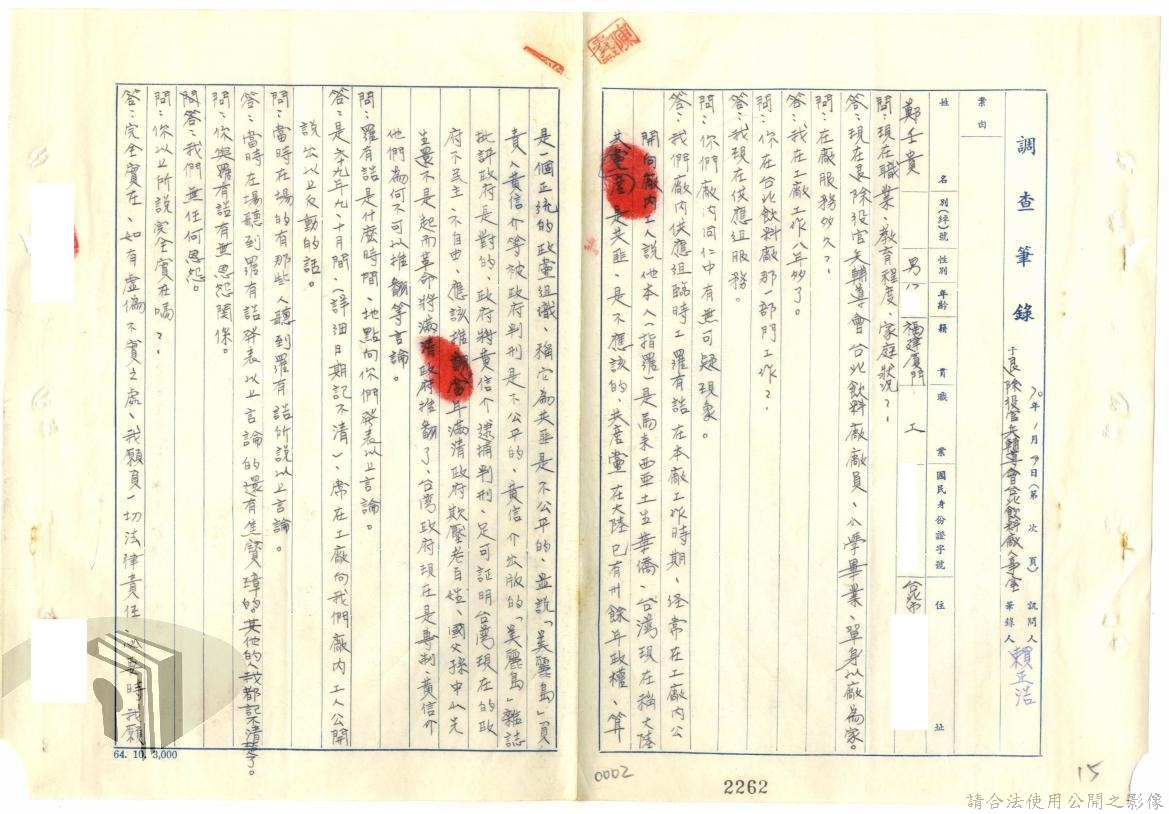 調查筆錄
70年1月9日(第 次 頁)
于退除役官兵輔導會台北飲料廠人事室
訊問人
筆錄人 賴正浩
案由
姓名 別(綽)號 性別 年齡 籍貫 職業 國民身份證字號 住址
鄭壬貴 男 福建廈門 工 台北市
問:現在職業、教育程度、家庭狀況?
答:現在退除役官兵輔導會台北飲料廠廠員、小學畢業、單身以廠為家。
問:在廠服務多久?
答:我在工廠工作八年多了。
問:你在台北飲料廠那一部門工作?
答:我現在供應組服務。
問:你們廠內同仁中有無可疑現象。
答:我們廠內供應組臨時工羅有諾在本廠工作時期、經常在工廠內公
開向廠內工人說他本人(指羅)是馬來西亜土生華僑、台灣現在稱大陸
共產黨是共匪、是不應該的、共產黨在大陸已有卅餘年政權、算
是一個正統的政黨組織、稱它為共匪是不公平的、並說「美麗島」負
責人黃信介等被政府判刑是不公平的、黃信介出版的「美麗島」雜誌
批評政府是對的、政府將黃信介逮捕判刑、足可証明台灣現在的政
府不民主、不自由、應該推翻、當年滿清政府欺壓老百姓、國父孫中山先
生還不是起而革命將滿清政府推翻了、台湾政府現在是專制、黃信介
他們為何不可以推翻等言論。
問:羅有諾是什麼時間、地點向你們發表以上言論。
答:是六十九年九、十月間(詳細日期記不清)、常在工廠向我們廠內工人公開
說出以上反動的話。
問:當時在場的有那些人聽到羅有諾所說以上言論。
答:當時在場聽到羅有諾發表以上言論的還有焦寶璋的其他的人我都記不清楚了。
問:你與羅有諾有無恩怨關係。
答:我們無任何恩怨。
問:你以上所說完全實在嗎?
答:完全實在、如有虛偽不實之處、我願負一切法律責任、必要時我願
64. 10, 3,000
0002
2262
15
請合法使用公開之影像